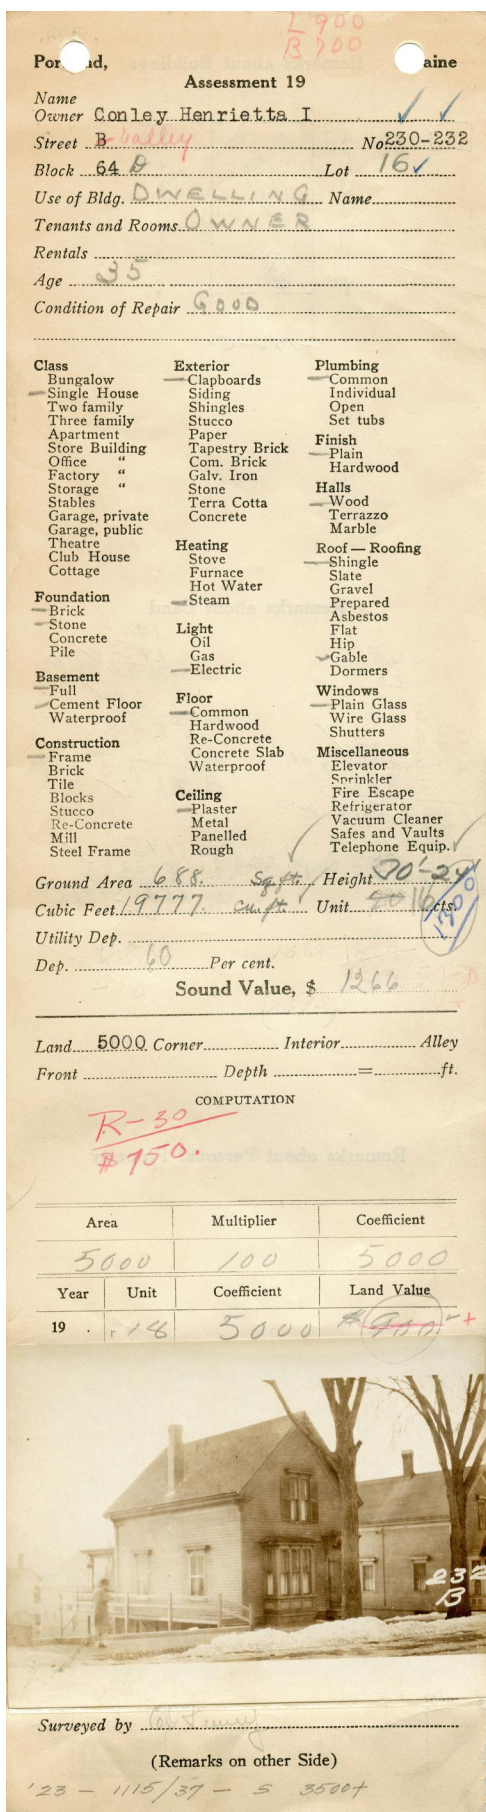 L 900
B 700
Por nd, aine
Assessment 19
Name
Owner Conley Henrietta I
Street B Valley No 230-232
Block 64 D Lot 16
Use of Bldg. DWELLING Name
Tenants and Rooms OWNER
Rentals
Age 35
Condition of Repair GOOD
Class
Bungalow
Single House
Two family
Three family
Apartment
Store Building
Office "
Factory "
Storage "
Stables
Garage, private
Garage, public
Theatre
Club House
Cottage
Foundation
Brick
Stone
Concrete
Pile
Basement
Full
Cement Floor
Waterproof
Construction
Frame
Brick
Tile
Blocks
Stucco
Re-Concrete
Mill
Steel Frame
Exterior
Clapboards
Siding
Shingles
Stucco
Paper
Tapestry Brick
Com. Brick
Galv. Iron
Stone
Terra Cotta
Concrete
Heating
Stove
Furnace
Hot Water
Steam
Light
Oil
Gas
Electric
Floor
Common
Hardwood
Re-Concrete
Concrete Slab
Waterproof
Ceiling
Plaster
Metal
Panelled
Rough
Plumbing
Common
Individual
Open
Set tubs
Finish
Plain
Hardwood
Halls
Wood
Terrazzo
Marble
Roof — Roofing
Shingle
Slate
Gravel
Prepared
Asbestos
Flat
Hip
Gable
Dormers
Windows
Plain Glass
Wire Glass
Shutters
Miscellaneous
Elevator
Sprinkler
Fire Escape
Refrigerator
Vacuum Cleaner
Safes and Vaults
Telephone Equip.
Ground Area 688. Sq. ft. Height
Cubic Feet 19777. cu. ft. Unit 16 cts.
Utility Dep.
Dep. 60 Per cent.
Sound Value, $ 1266
Land 5000 Corner Interior Alley
Front Depth = ft.
COMPUTATION
R-30
$750.
Area Multiplier Coefficient
5000 100 5000
Year Unit Coefficient Land Value
19 . .18 5000 $ 900.
232
B
Surveyed by
(Remarks on other Side)
'23 - 1115/37 - S 3500+